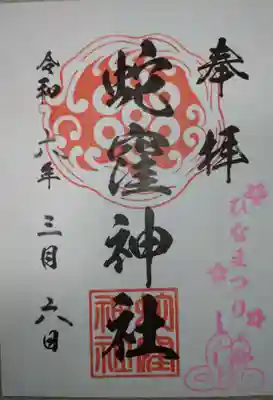 奉拝
ひなまつり
蛇窪神社
令和六年三月六日